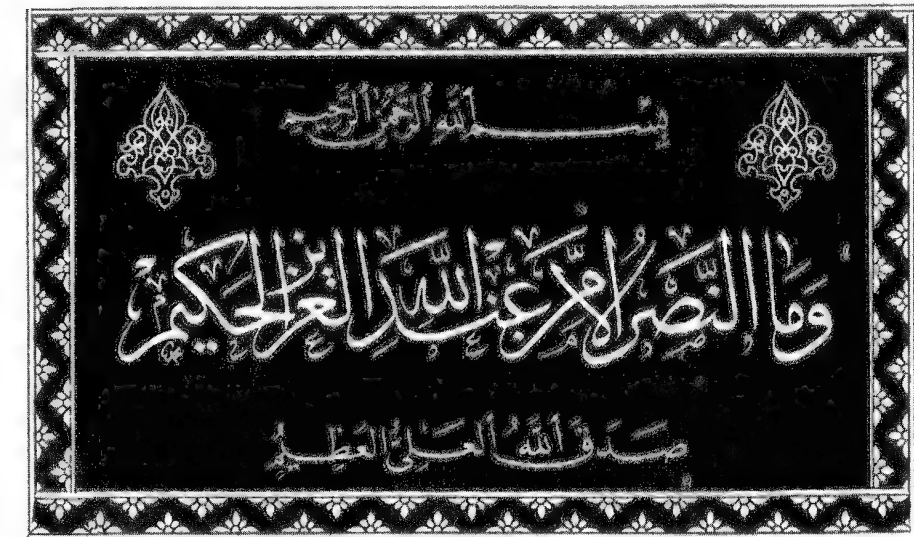 بسم الله الرحمن الرحيم
وما النصر إلا من عند الله العزيز الحكيم
صدق الله العلي العظيم